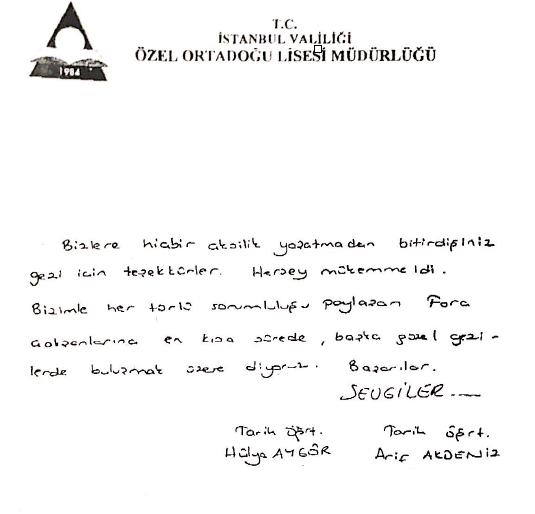 T.C.
İSTANBUL VALİLİĞİ
ÖZEL ORTADOĞU LİSESİ MÜDÜRLÜĞÜ
1984
Bizlere hiçbir aksilik yaşatmadan bitirdiğiniz
gezi için teşekkürler. Herşey mükemmeldi.
Bizimle her türlü sorumluluğu paylaşan Fora
çalışanlarına en kısa sürede, başka güzel gezi-
lerde buluşmak üzere diyoruz. Başarılar.
SEVGİLER
Tarih öğrt. Tarih öğrt.
Hülya AYGÖR Arif AKDENİZ